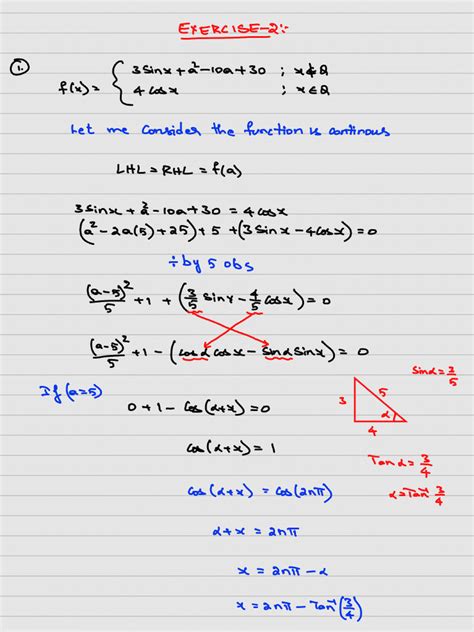 EXERCISE-2:-
1. f(x) = { 3 Sinx + a² - 10a + 30 ; x∉Q
4 Cosx ; x∈Q
Let me Consider the function is continous
LHL = RHL = f(a)
3 sinx + a² - 10a + 30 = 4 Cosx
(a² - 2a(5) + 25) + 5 + (3 Sinx - 4 Cosx) = 0
÷ by 5 obs
(a-5)²/5 + 1 + (3/5 Sinx - 4/5 Cosx) = 0
(a-5)²/5 + 1 - (Cosα Cosx - Sinα Sinx) = 0
Sinα = 3/5
If (a=5)
0 + 1 - Cos(α+x) = 0
3 5 α 4
Cos(α+x) = 1
Tanα = 3/4
Cos(α+x) = Cos(2nπ)
α = Tan⁻¹ 3/4
α + x = 2nπ
x = 2nπ - α
x = 2nπ - Tan⁻¹(3/4)